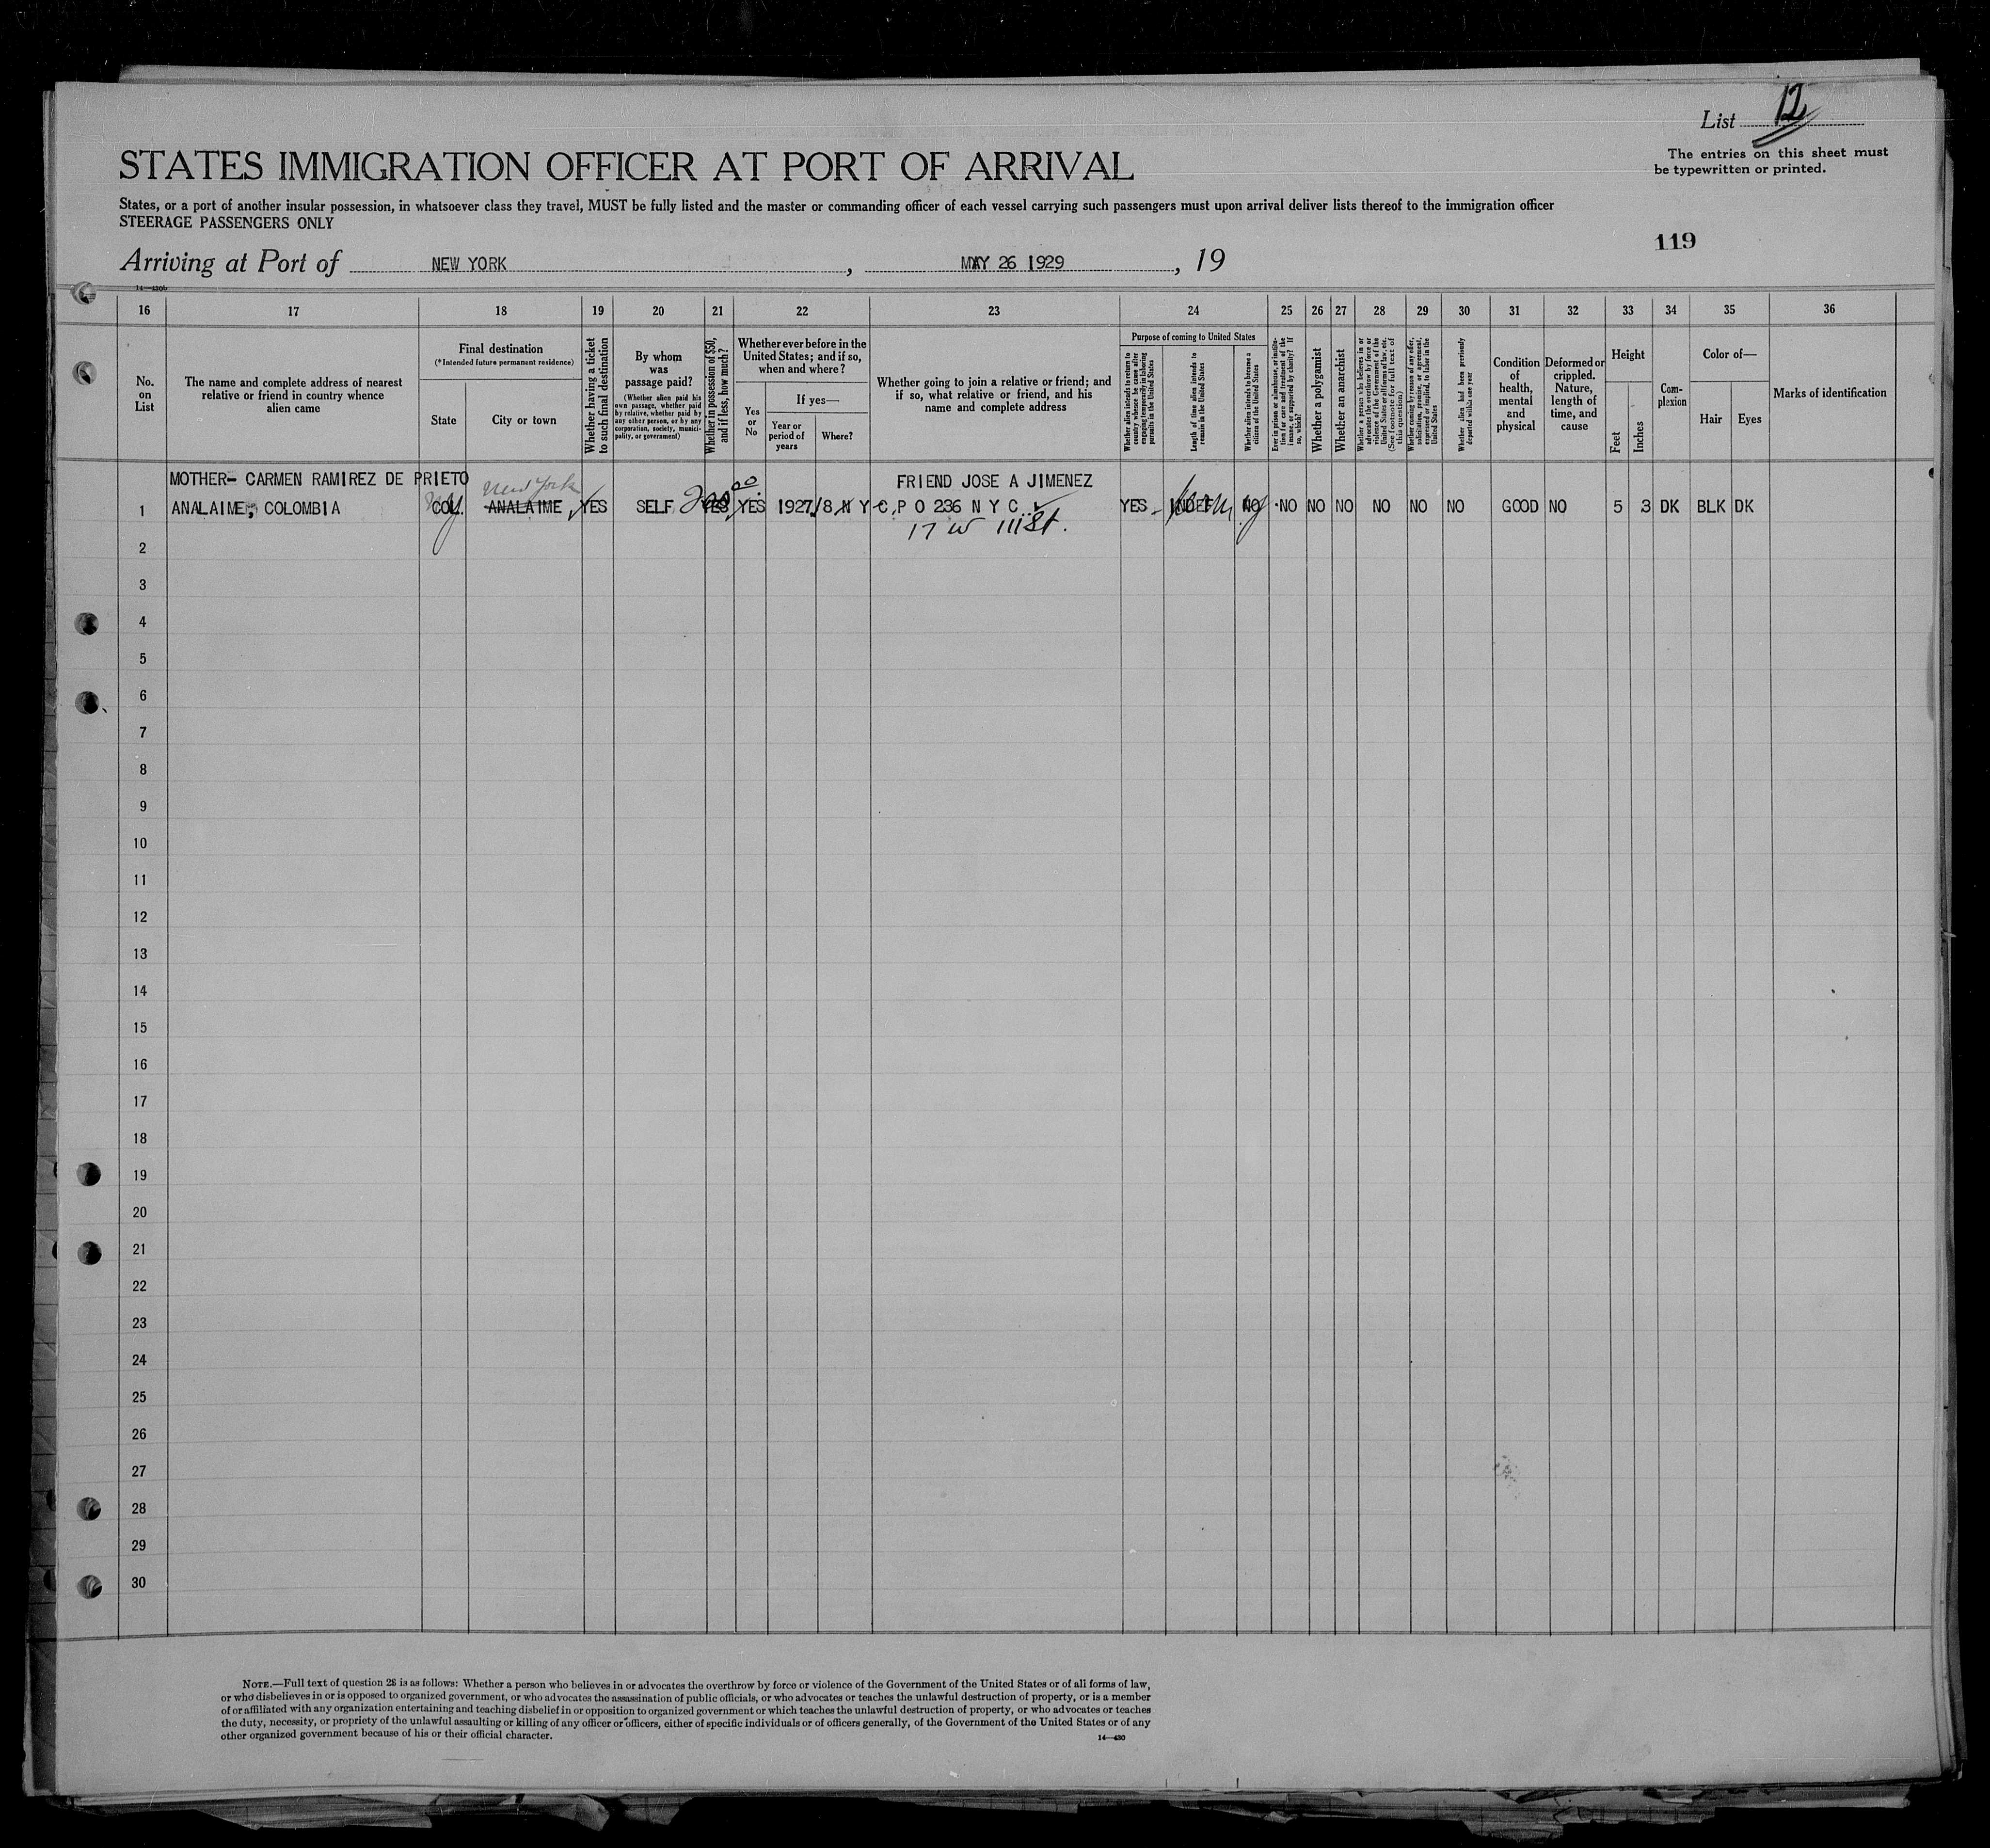 List 12
The entries on this sheet must
be typewritten or printed.
STATES IMMIGRATION OFFICER AT PORT OF ARRIVAL
States, or a port of another insular possession, in whatsoever class they travel, MUST be fully listed and the master or commanding officer of each vessel carrying such passengers must upon arrival deliver lists thereof to the immigration officer
STEERAGE PASSENGERS ONLY
119
Arriving at Port of NEW YORK, MAY 26 1929, 19
14—430b
16 17 18 19 20 21 22 23 24 25 26 27 28 29 30 31 32 33 34 35 36
No. on List
The name and complete address of nearest
relative or friend in country whence
alien came
Final destination
(*Intended future permanent residence)
State
City or town
Whether having a ticket
to such final destination
By whom
was
passage paid?
(Whether alien paid his
own passage, whether paid
by relative, whether paid by
any other person, or by any
corporation, society, munici-
pality, or government)
Whether in possession of $50,
and if less, how much?
Whether ever before in the
United States; and if so,
when and where?
Yes
or
No
If yes—
Year or
period of
years
Where?
Whether going to join a relative or friend; and
if so, what relative or friend, and his
name and complete address
Purpose of coming to United States
Whether alien intends to return to
country whence he came after
engaging temporarily in laboring
pursuits in the United States
Length of time alien intends to
remain in the United States
Whether alien intends to become a
citizen of the United States
Ever in prison or almshouse, or institu-
tion for care and treatment of the
insane, or supported by charity? If
so, which?
Whether a polygamist
Whether an anarchist
Whether a person who believes in or
advocates the overthrow by force or
violence of the Government of the
United States or all forms of law, etc.
(See footnote for full text of
this question)
Whether coming by reason of any offer,
solicitation, promise, or agreement,
expressed or implied, to labor in the
United States
Whether alien had been previously
deported within one year
Condition
of
health,
mental
and
physical
Deformed or
crippled.
Nature,
length of
time, and
cause
Height
Feet
Inches
Com-
plexion
Color of—
Hair
Eyes
Marks of identification
MOTHER- CARMEN RAMIREZ DE PRIETO New York FRIEND JOSE A JIMENEZ
1 ANALAIME, COLOMBIA COL. NY ANALAIME YES SELF YES 200.00 YES 1927/8 N Y C P O 236 N Y C YES INDEF NO NO NO NO NO NO NO GOOD NO 5 3 DK BLK DK
17 W 111 St.
2
3
4
5
6
7
8
9
10
11
12
13
14
15
16
17
18
19
20
21
22
23
24
25
26
27
28
29
30
NOTE.—Full text of question 28 is as follows: Whether a person who believes in or advocates the overthrow by force or violence of the Government of the United States or of all forms of law,
or who disbelieves in or is opposed to organized government, or who advocates the assassination of public officials, or who advocates or teaches the unlawful destruction of property, or is a member
of or affiliated with any organization entertaining and teaching disbelief in or opposition to organized government or which teaches the unlawful destruction of property, or who advocates or teaches
the duty, necessity, or propriety of the unlawful assaulting or killing of any officer or officers, either of specific individuals or of officers generally, of the Government of the United States or of any
other organized government because of his or their official character.
14—430